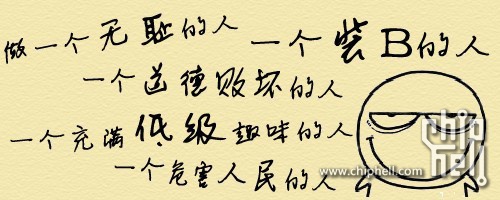 做一个无耻的人
一个装B的人
一个道德败坏的人
一个充满低级趣味的人
一个危害人民的人
chip
hell
www.chiphell.com